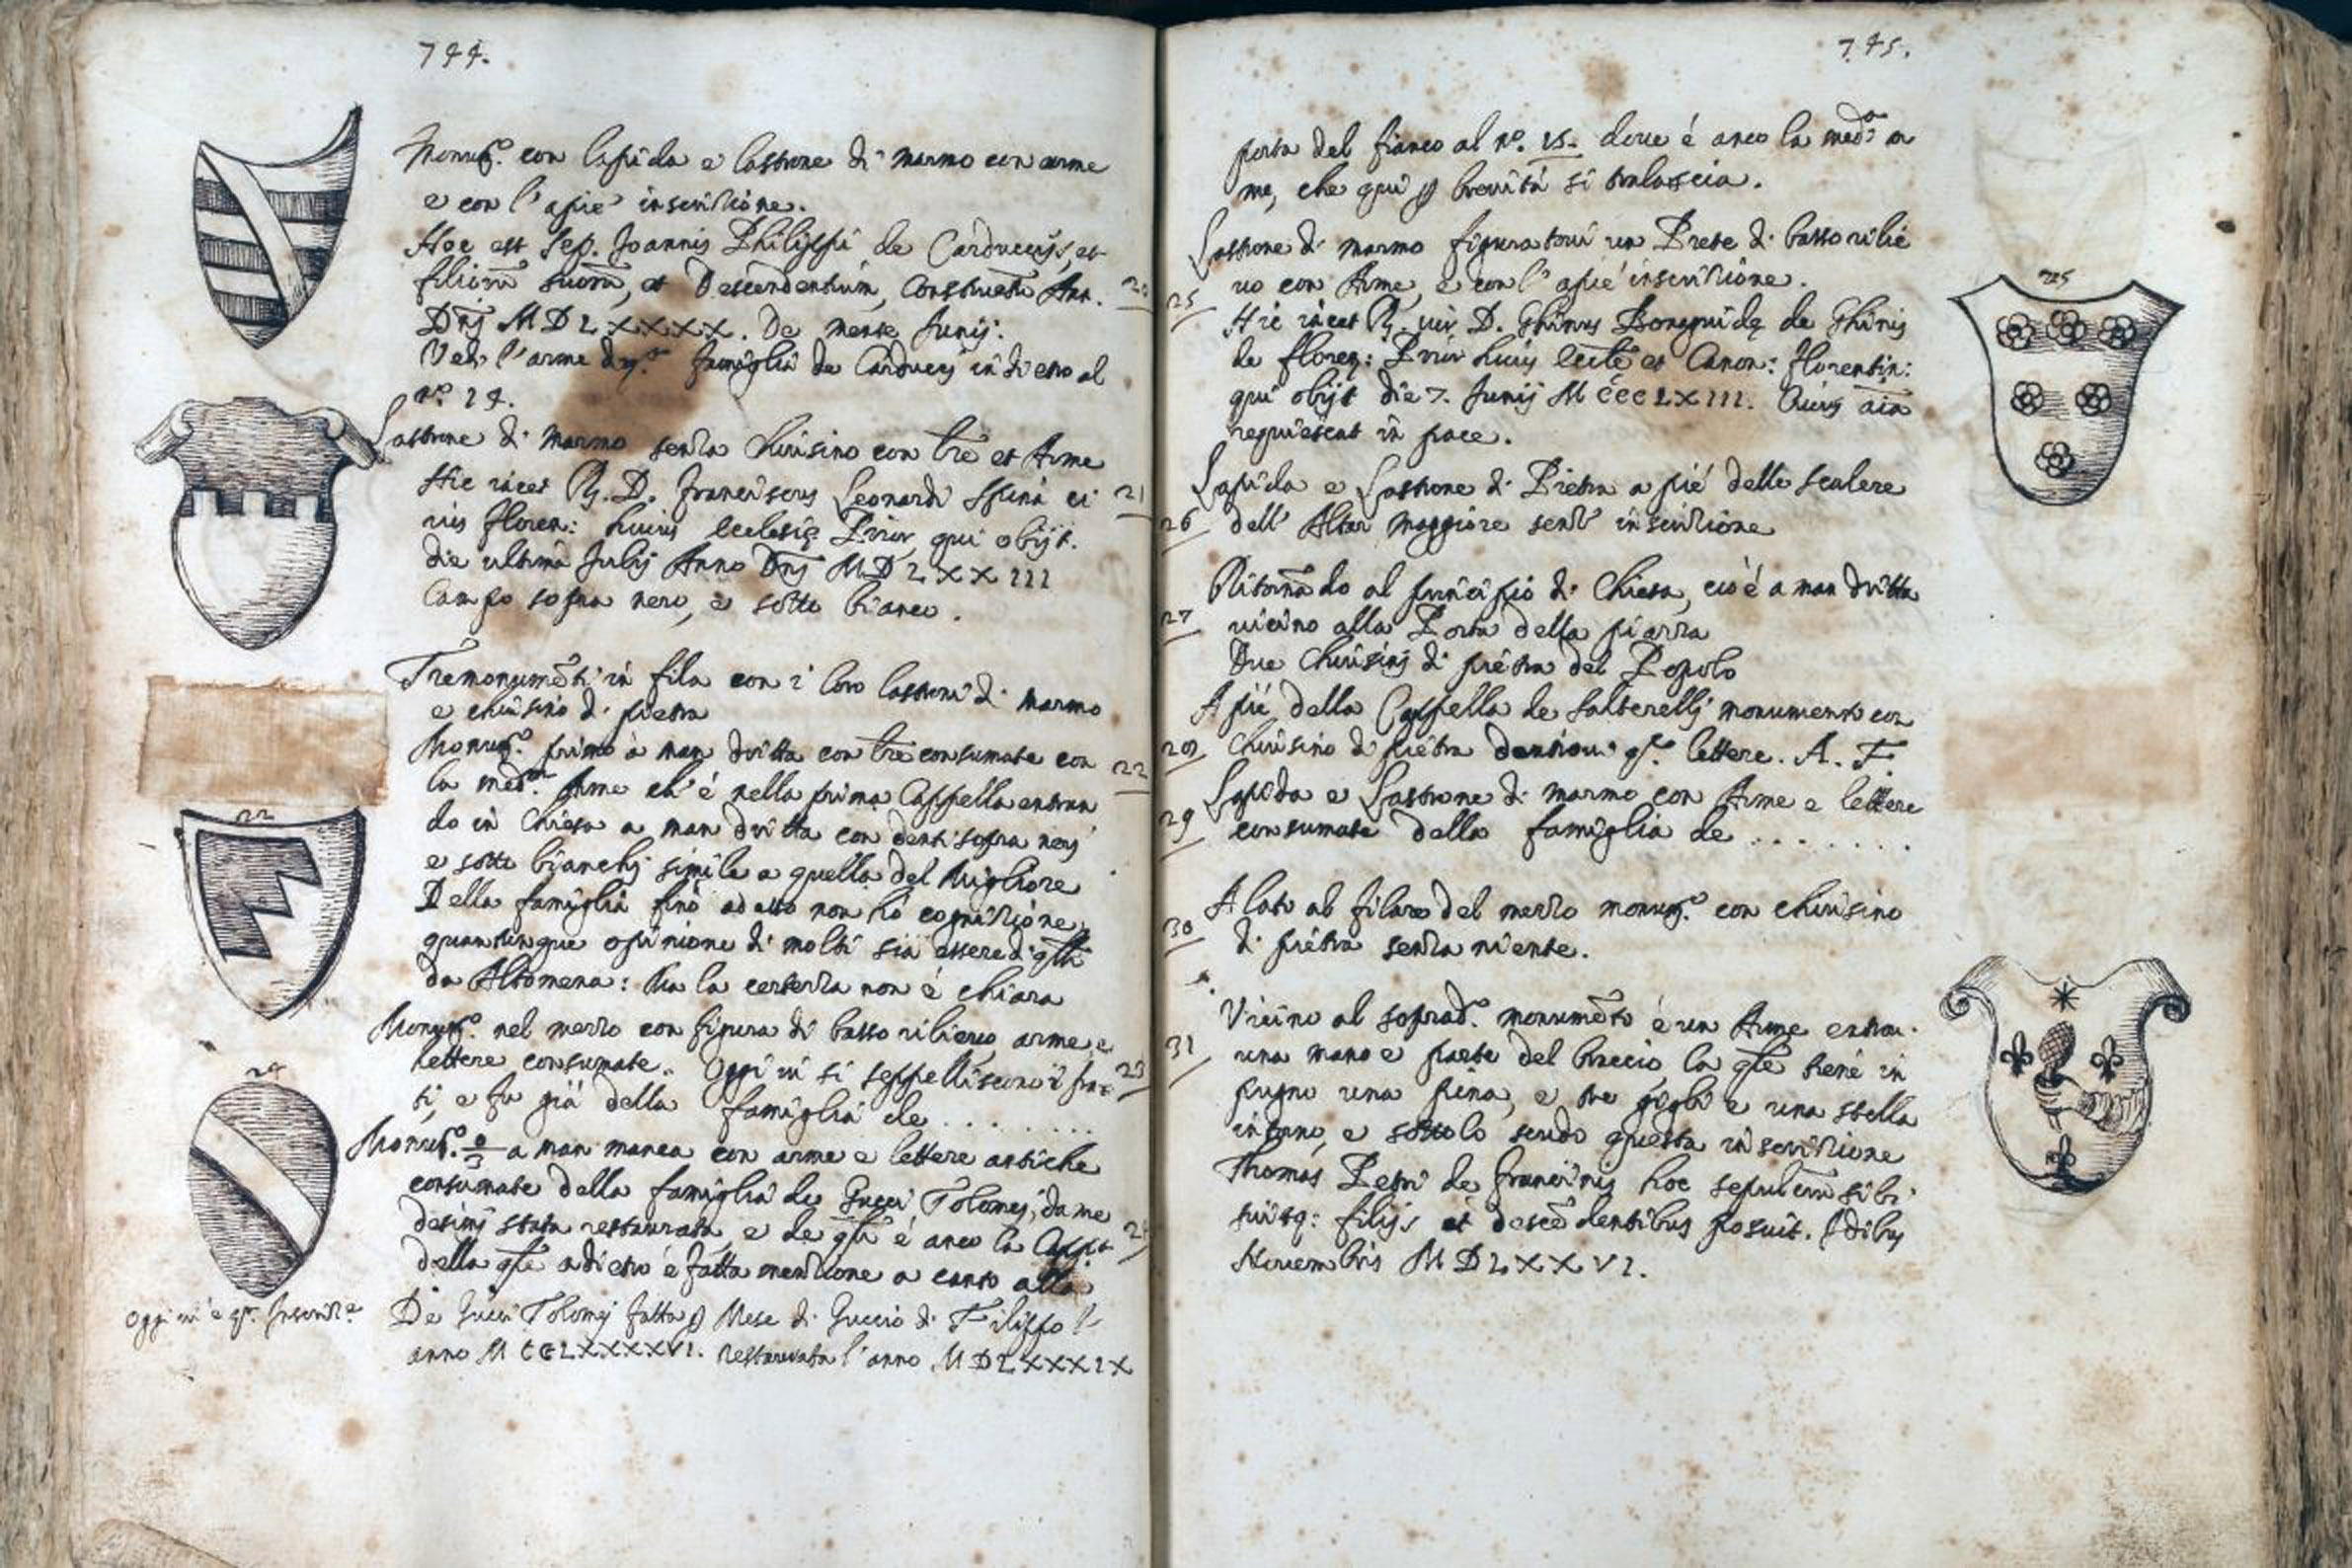 744.
Monum.to con lapida e lastrone di marmo con arme
e con l'apie' inscrizione.
Hoc est Sep. Joannis Philippi de Carduccijs, et
filiorũ suorũ, et Descendentium, Constructũ Ann.
20
Dñj MDLXXXX. De mense Junij.
Vedi l'arme Famiglia de Carducij in dietro al
nº. 14.
Lastrone di marmo senza chiusino con lre et Arme
Hic iacet R. D. Franciscus Leonardi Spina ci
21
uis floren: huius Ecclesię Prior, qui obijt.
die ultima Julij Anno Dñj MDLXXIII
Campo sopra nero, e sotto bianco.
Tre monumẽti in fila con i loro lastroni di marmo
e chiusino di pietra
Monum.to primo a man dritta con lre consumate con
22
la med.ma Arme ch'é nella prima Cappella entran
do in Chiesa a man dritta con denti sopra nerj
22
e sotto bianchj simile a quella del Migliore
Della famiglia fino ad esso non hó cognizione,
quantunque opinione di molti sia essere di qlli
da Altomena: Ma la certezza non é chiara
Monum.to nel mezzo con figura di basso rilieuo arme e
lettere consumate. Oggi ui si seppelliscono i fra=
23
ti, e fu giá della famiglia de .........
24
Monum.to 3 a man manca con arme e lettere antiche
consumate della famiglia de Gucci Tolomej, da me
desimj stata restaurata, e de qli é anco la Capp.a
24
della qle adietro é fatta menzione a canto alla
Oggi ui é q.ta Inscriz.e
De Gucci Tolomej fatta p Mese di Guccio di Filippo l'
anno MCCCLXXXXVI. restaurata l'anno MDLXXXIX
745.
porta del fianco al nº. 15. doue é anco la med.a ar
me, che qui p breuitá si tralascia.
Lastrone di marmo figuratoui un Prete di basso rilie
uo con Arme, e con l'apié inscrizione.
25
25
Hic iacet R. uir D. Ghinus Bonguidę de Ghinis
de floren: Prior huius Eccle et Canon: florentin:
qui obijt die 7. Junij MCCCCLXIII. Cuius aĩa
requiescat in pace.
Lapida e Lastrone di Pietra a pié delle scalere
26 dell'Altar Maggiore senz'inscrizione
Ritornãdo al principio di Chiesa, cioé a man dritta
27 uicino alla Porta della piazza
Due chiusini di pietra del Popolo
A pié della Cappella de Salterellj monumento con
28 chiusino di pietra dentroui q.te lettere. A. F.
Lapida e Lastrone di marmo con Arme e lettere
29 consumate della famiglia de ........
A lato al filare del mezzo monum.to con chiusino
30 di pietra senza niente.
Vicino al soprad.o monumẽto é un Arme entroui
31 una mano e parte del braccio la qle tiene in
pugno una pina, e tre gigli e una stella
intorno, e sotto lo scudo questa inscrizione
Thomas Petri de Francinis hoc sepulcrũ sibi
suisq: filijs et descẽdentibus posuit. Idibus
Nouembris MDLXXVI.